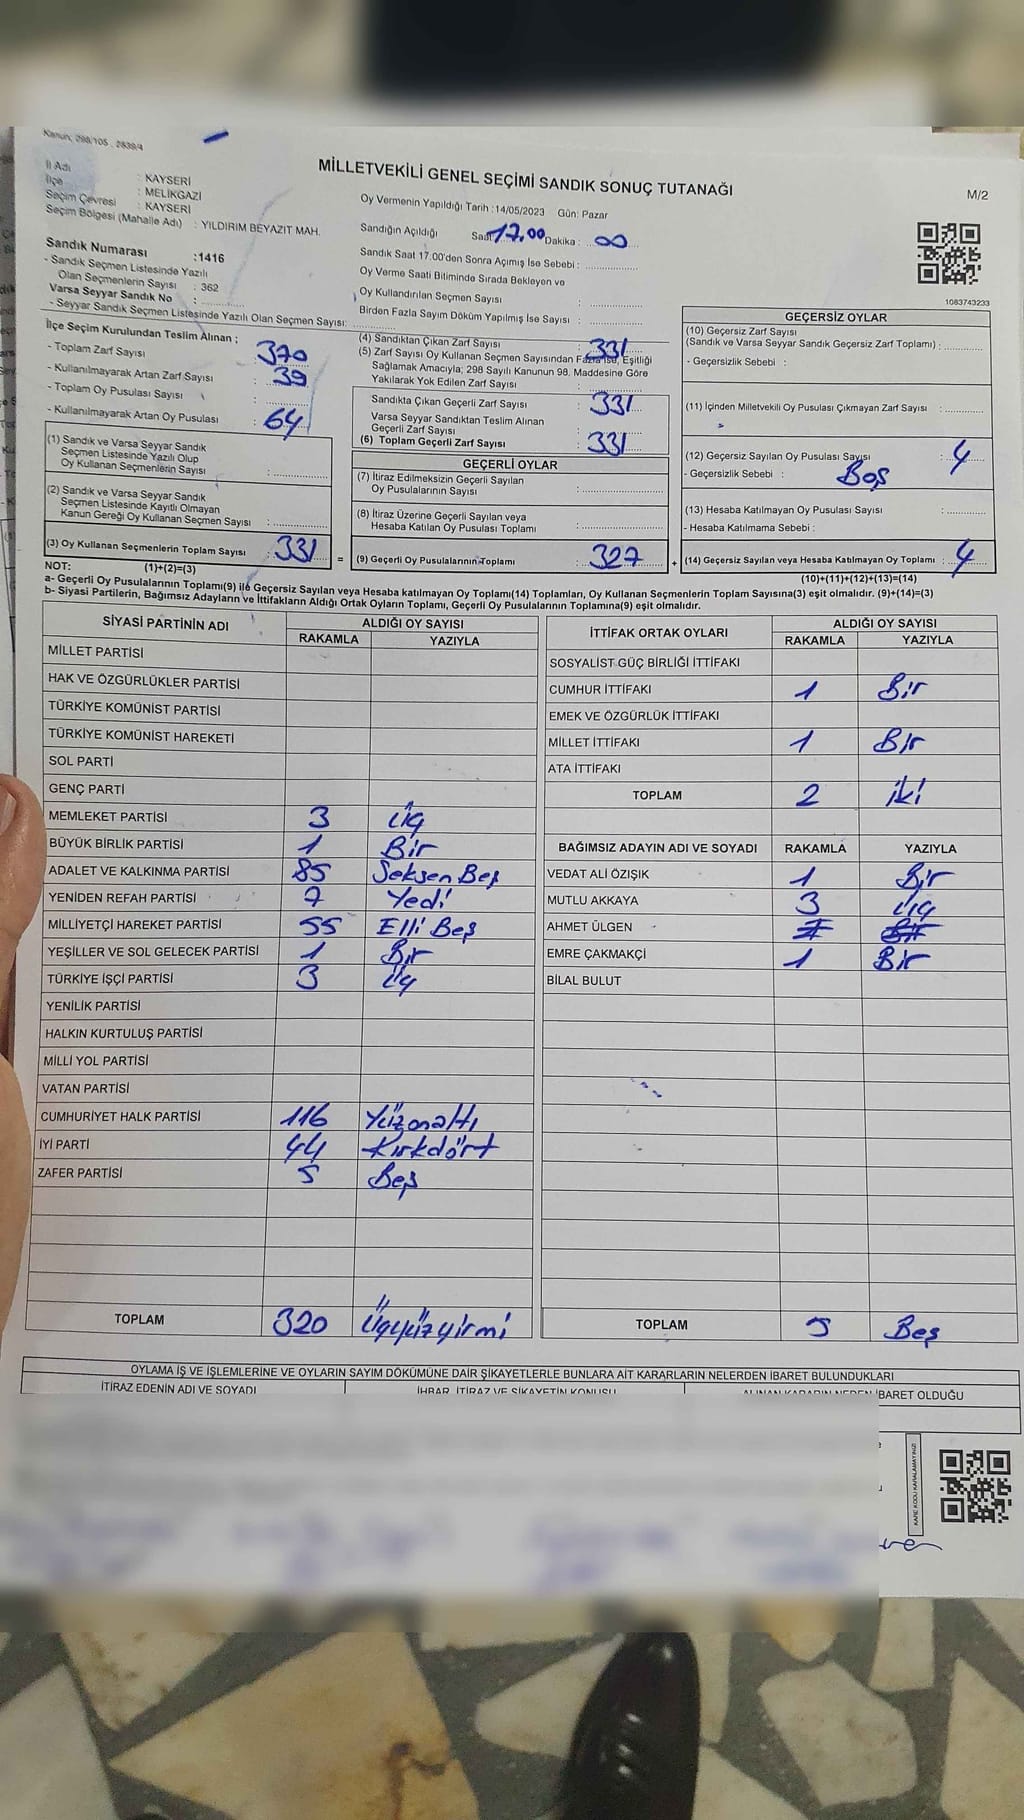 Kanun; 298/105 , 2839/4
MİLLETVEKİLİ GENEL SEÇİMİ SANDIK SONUÇ TUTANAĞI
M/2
İl Adı : KAYSERİ
İlçe : MELİKGAZİ
Seçim Çevresi : KAYSERİ
Seçim Bölgesi (Mahalle Adı) : YILDIRIM BEYAZIT MAH.
Sandık Numarası :1416
- Sandık Seçmen Listesinde Yazılı
Olan Seçmenlerin Sayısı : 362
Varsa Seyyar Sandık No :
- Seyyar Sandık Seçmen Listesinde Yazılı Olan Seçmen Sayısı:
Oy Vermenin Yapıldığı Tarih :14/05/2023 Gün: Pazar
Sandığın Açıldığı Saat 17.00 Dakika : 00
Sandık Saat 17.00'den Sonra Açımış İse Sebebi :
Oy Verme Saati Bitiminde Sırada Bekleyen ve
Oy Kullandırılan Seçmen Sayısı :
Birden Fazla Sayım Döküm Yapılmış İse Sayısı :
1083743233
İlçe Seçim Kurulundan Teslim Alınan ;
- Toplam Zarf Sayısı : 370
- Kullanılmayarak Artan Zarf Sayısı : 39
- Toplam Oy Pusulası Sayısı :
- Kullanılmayarak Artan Oy Pusulası : 64
(1) Sandık ve Varsa Seyyar Sandık
Seçmen Listesinde Yazılı Olup
Oy Kullanan Seçmenlerin Sayısı :
(2) Sandık ve Varsa Seyyar Sandık
Seçmen Listesinde Kayıtlı Olmayan
Kanun Gereği Oy Kullanan Seçmen Sayısı :
(3) Oy Kullanan Seçmenlerin Toplam Sayısı : 331 =
(4) Sandıktan Çıkan Zarf Sayısı : 331
(5) Zarf Sayısı Oy Kullanan Seçmen Sayısından Fazla İse, Eşitliği
Sağlamak Amacıyla; 298 Sayılı Kanunun 98. Maddesine Göre
Yakılarak Yok Edilen Zarf Sayısı :
Sandıkta Çıkan Geçerli Zarf Sayısı : 331
Varsa Seyyar Sandıktan Teslim Alınan
Geçerli Zarf Sayısı :
(6) Toplam Geçerli Zarf Sayısı : 331
GEÇERLİ OYLAR
(7) İtiraz Edilmeksizin Geçerli Sayılan
Oy Pusulalarının Sayısı :
(8) İtiraz Üzerine Geçerli Sayılan veya
Hesaba Katılan Oy Pusulası Toplamı :
(9) Geçerli Oy Pusulalarının Toplamı : 327 +
GEÇERSİZ OYLAR
(10) Geçersiz Zarf Sayısı
(Sandık ve Varsa Seyyar Sandık Geçersiz Zarf Toplamı) :
- Geçersizlik Sebebi :
(11) İçinden Milletvekili Oy Pusulası Çıkmayan Zarf Sayısı :
(12) Geçersiz Sayılan Oy Pusulası Sayısı : 4
- Geçersizlik Sebebi : Boş
(13) Hesaba Katılmayan Oy Pusulası Sayısı :
- Hesaba Katılmama Sebebi :
(14) Geçersiz Sayılan veya Hesaba Katılmayan Oy Toplamı : 4
NOT: (1)+(2)=(3)
(10)+(11)+(12)+(13)=(14)
a- Geçerli Oy Pusulalarının Toplamı(9) ile Geçersiz Sayılan veya Hesaba katılmayan Oy Toplamı(14) Toplamları, Oy Kullanan Seçmenlerin Toplam Sayısına(3) eşit olmalıdır. (9)+(14)=(3)
b- Siyasi Partilerin, Bağımsız Adayların ve İttifakların Aldığı Ortak Oyların Toplamı, Geçerli Oy Pusulalarının Toplamına(9) eşit olmalıdır.
SİYASİ PARTİNİN ADI ALDIĞI OY SAYISI
RAKAMLA YAZIYLA
MİLLET PARTİSİ
HAK VE ÖZGÜRLÜKLER PARTİSİ
TÜRKİYE KOMÜNİST PARTİSİ
TÜRKİYE KOMÜNİST HAREKETİ
SOL PARTİ
GENÇ PARTİ
MEMLEKET PARTİSİ 3 Üç
BÜYÜK BİRLİK PARTİSİ 1 Bir
ADALET VE KALKINMA PARTİSİ 85 Seksen Beş
YENİDEN REFAH PARTİSİ 7 Yedi
MİLLİYETÇİ HAREKET PARTİSİ 55 Elli Beş
YEŞİLLER VE SOL GELECEK PARTİSİ 1 Bir
TÜRKİYE İŞÇİ PARTİSİ 3 Üç
YENİLİK PARTİSİ
HALKIN KURTULUŞ PARTİSİ
MİLLİ YOL PARTİSİ
VATAN PARTİSİ
CUMHURİYET HALK PARTİSİ 116 Yüzonaltı
İYİ PARTİ 44 Kırkdört
ZAFER PARTİSİ 5 Beş
TOPLAM 320 Üçyüzyirmi
İTTİFAK ORTAK OYLARI ALDIĞI OY SAYISI
RAKAMLA YAZIYLA
SOSYALİST GÜÇ BİRLİĞİ İTTİFAKI
CUMHUR İTTİFAKI 1 Bir
EMEK VE ÖZGÜRLÜK İTTİFAKI
MİLLET İTTİFAKI 1 Bir
ATA İTTİFAKI
TOPLAM 2 iki
BAĞIMSIZ ADAYIN ADI VE SOYADI RAKAMLA YAZIYLA
VEDAT ALİ ÖZIŞIK 1 Bir
MUTLU AKKAYA 3 Üç
AHMET ÜLGEN
EMRE ÇAKMAKÇİ 1 Bir
BİLAL BULUT
TOPLAM 5 Beş
OYLAMA İŞ VE İŞLEMLERİNE VE OYLARIN SAYIM DÖKÜMÜNE DAİR ŞİKAYETLERLE BUNLARA AİT KARARLARIN NELERDEN İBARET BULUNDUKLARI
İTİRAZ EDENİN ADI VE SOYADI İHBAR, İTİRAZ VE ŞİKAYETİN KONUSU ALINAN KARARIN NEDEN İBARET OLDUĞU
KARE KODU KARALAMAYINIZ!